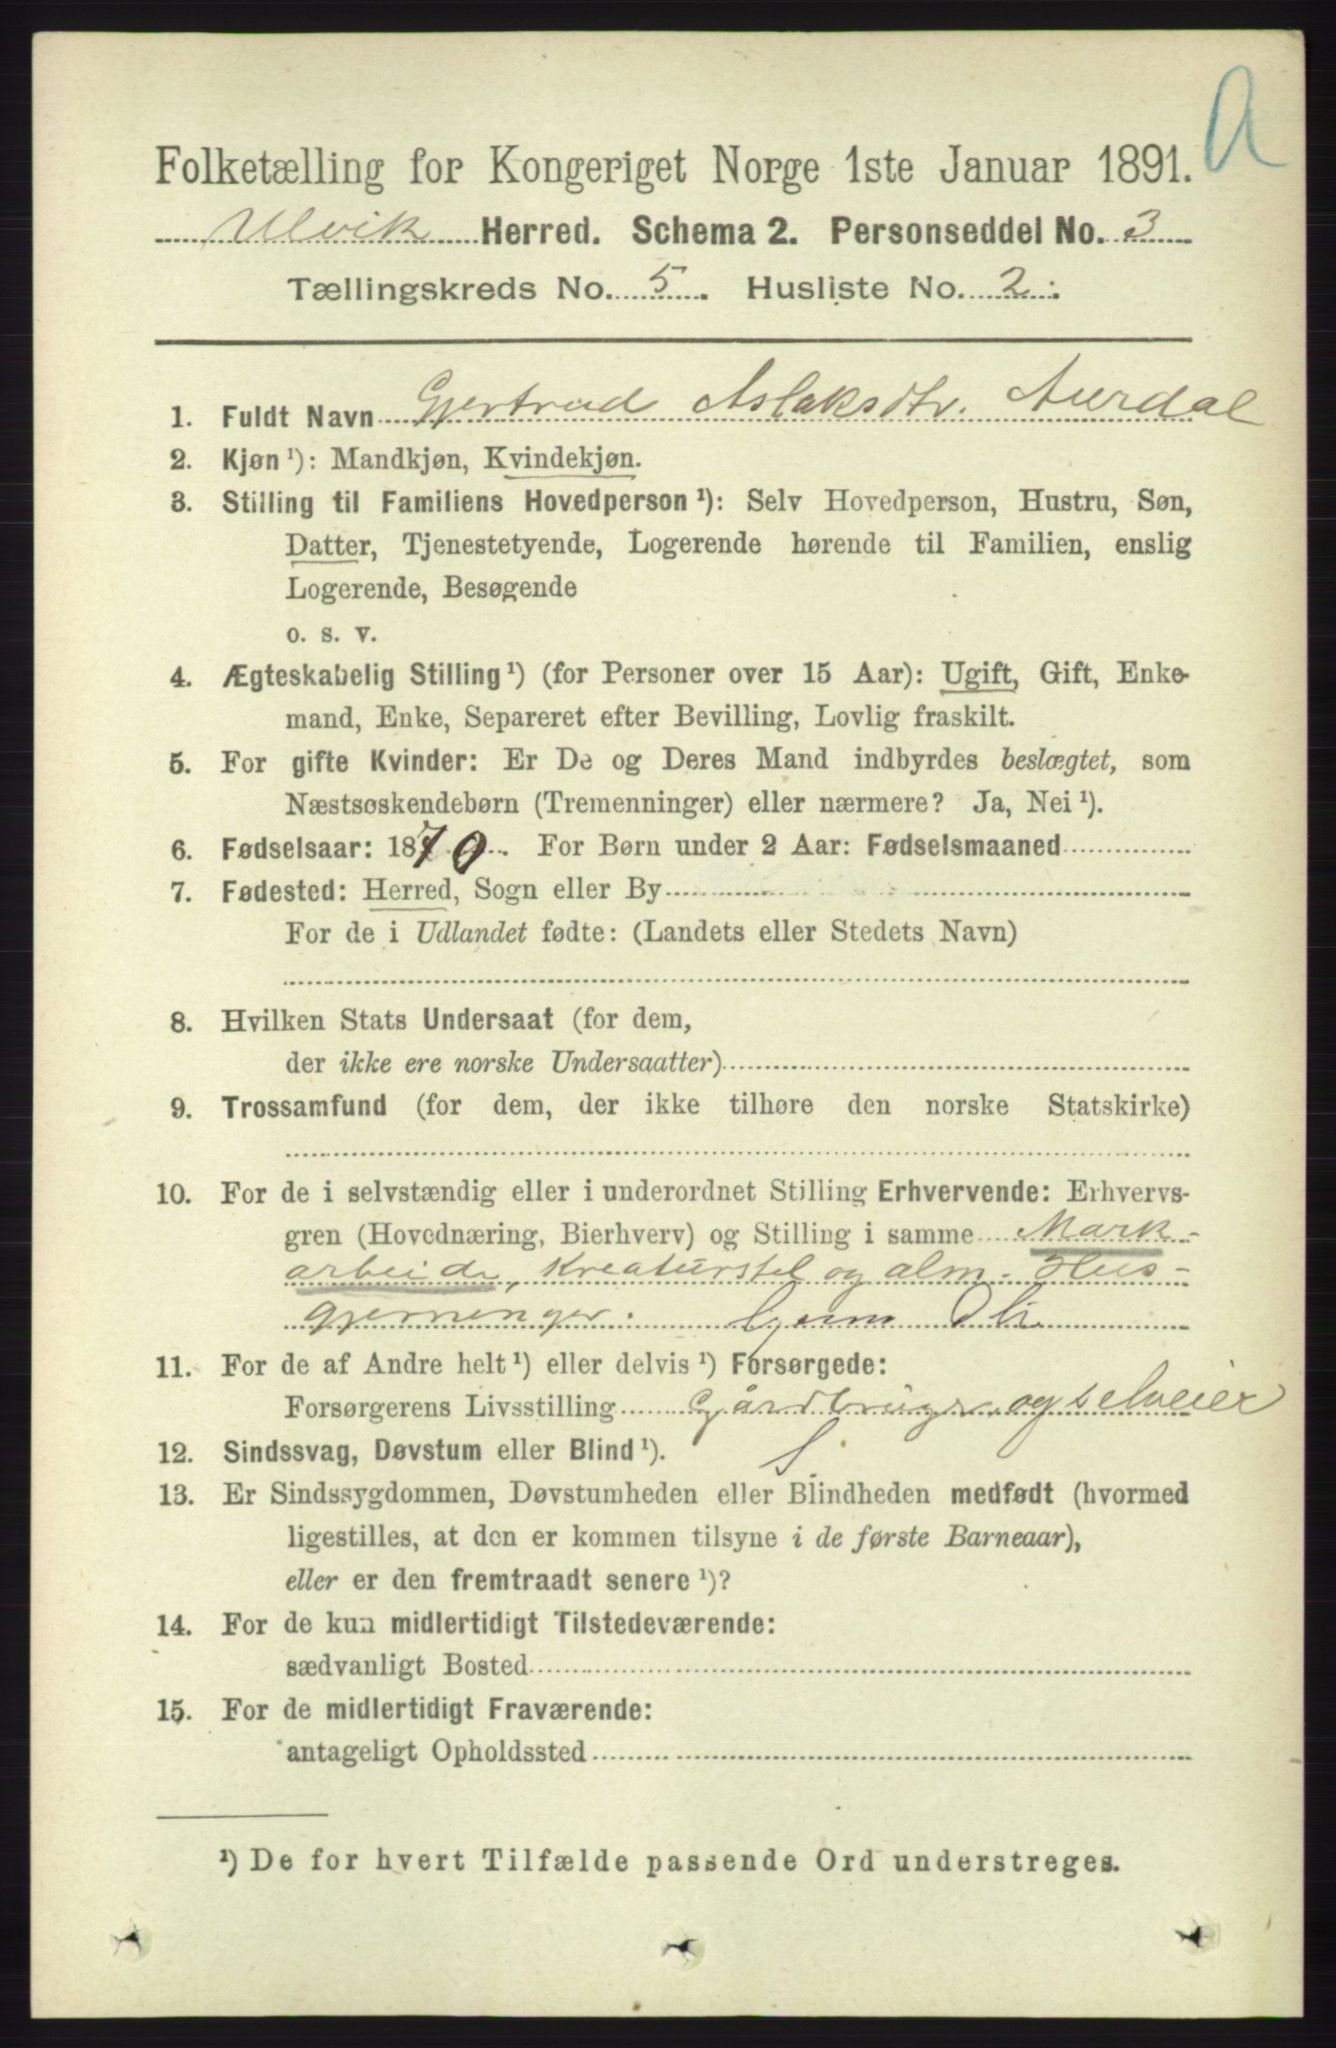 A
Folketælling for Kongeriget Norge 1ste Januar 1891.
Ulvik Herred. Schema 2. Personseddel No. 3
Tællingskreds No. 5. Husliste No. 2.
1. Fuldt Navn Gjertrud Aslaksdtr. Aurdal
2. Kjøn ¹): Mandkjøn, Kvindekjøn.
3. Stilling til Familiens Hovedperson ¹): Selv Hovedperson, Hustru, Søn,
Datter, Tjenestetyende, Logerende hørende til Familien, enslig
Logerende, Besøgende
o. s. v.
4. Ægteskabelig Stilling ¹) (for Personer over 15 Aar): Ugift, Gift, Enke-
mand, Enke, Separeret efter Bevilling, Lovlig fraskilt.
5. For gifte Kvinder: Er De og Deres Mand indbyrdes beslægtet, som
Næstsøskendebørn (Tremenninger) eller nærmere? Ja, Nei ¹).
6. Fødselsaar: 1870. For Børn under 2 Aar: Fødselsmaaned
7. Fødested: Herred, Sogn eller By
For de i Udlandet fødte: (Landets eller Stedets Navn)
8. Hvilken Stats Undersaat (for dem,
der ikke ere norske Undersaatter)
9. Trossamfund (for dem, der ikke tilhøre den norske Statskirke)
10. For de i selvstændig eller i underordnet Stilling Erhvervende: Erhvervs-
gren (Hovednæring, Bierhverv) og Stilling i samme Mark-
arbeide, Kreaturstel og alm. Hus-
gjerninger.
11. For de af Andre helt ¹) eller delvis ¹) Forsørgede:
Forsørgerens Livsstilling Gårdbruger og selveier
12. Sindssvag, Døvstum eller Blind ¹). S.
13. Er Sindssygdommen, Døvstumheden eller Blindheden medfødt (hvormed
ligestilles, at den er kommen tilsyne i de første Barneaar),
eller er den fremtraadt senere ¹)?
14. For de kun midlertidigt Tilstedeværende:
sædvanligt Bosted
15. For de midlertidigt Fraværende:
antageligt Opholdssted
¹) De for hvert Tilfælde passende Ord understreges.